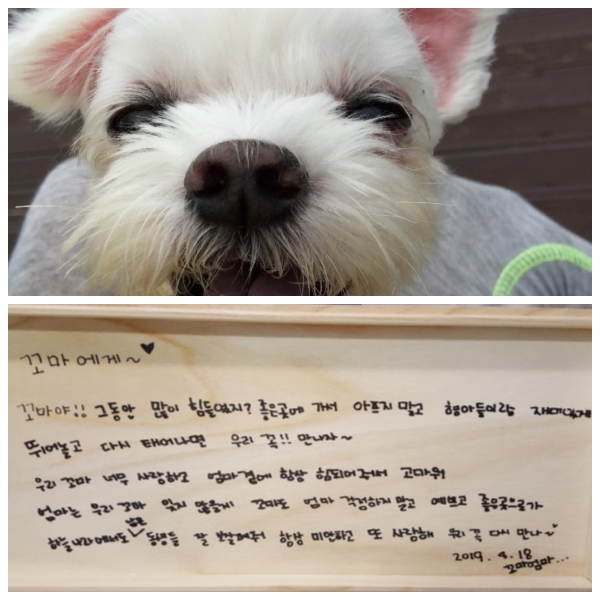 꼬마에게~♥
꼬마야!! 그동안 많이 힘들었지? 좋은곳에 가서 아프지말고 형아들이랑 재미있게
뛰어놀고 다시 태어나면 우리 꼭!! 만나자~
우리꼬마 너무 사랑하고 엄마곁에 항상 힘되어주어서 고마워
엄마는 우리꼬마 잊지 않을게 꼬마도 엄마 걱정하지말고 예쁘고 좋은곳으로가
하늘나라에서도 동생들 잘 보살펴줘 항상 미안하고 또 사랑해 우리 꼭 다시 만나~♥
2019. 4. 18
꼬마엄마...